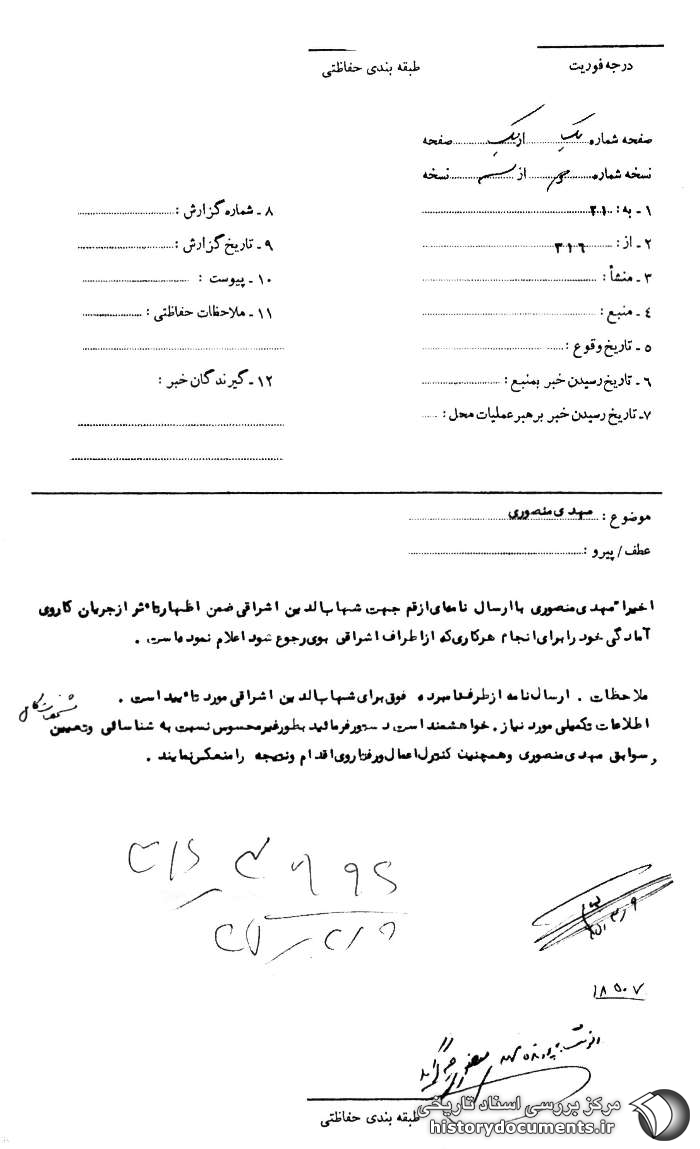 درجه فوریت
طبقه بندی حفاظتی
صفحه شماره یک از یک صفحه
نسخه شماره از سه نسخه
۱ـ به: ۲۱۰
۲ـ از: ۳۱۶
۳ـ منشأ:
۴ـ منبع:
۵ـ تاریخ وقوع:
۶ـ تاریخ رسیدن خبر بمنبع:
۷ـ تاریخ رسیدن خبر برهبر عملیات محل:
۸ـ شماره گزارش:
۹ـ تاریخ گزارش:
۱۰ـ پیوست:
۱۱ـ ملاحظات حفاظتی:
۱۲ـ گیرندگان خبر:
موضوع: مهدی منصوری
عطف/ پیرو:
اخیرا" مهدی منصوری با ارسال نامه‌ای از قم جهت شهاب الدین اشراقی ضمن اظهار تاثر از جریان کار وی
آمادگی خود را برای انجام هر کاری که از اطراف اشراقی بوی رجوع شود اعلام نموده است.
ملاحظات. ارسال نامه از طرف نامبرده فوق برای شهاب الدین اشراقی مورد تائید است.
اطلاعات تکمیلی مورد نیاز. خواهشمند است دستور فرمائید بطور غیر محسوس نسبت به شناسائی و تعیین
و سوابق مهدی منصوری و همچنین کنترل اعمال و رفتار وی اقدام و نتیجه را منعکس نمایند.
۱۸۵۰۷
طبقه بندی حفاظتی
مرکز بررسی اسناد تاریخی
historydocuments.ir